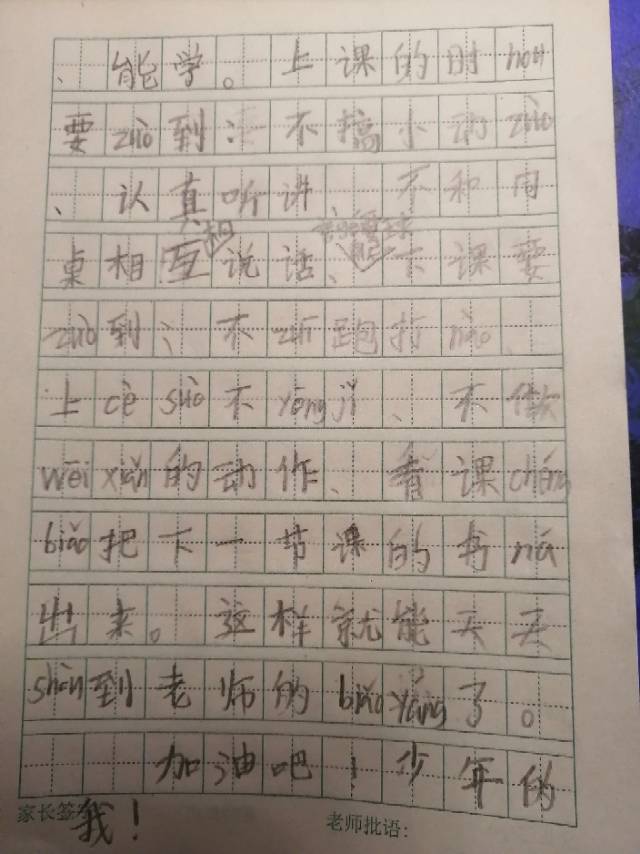 、能学。上课的时hou
要zuò到：不搞小动zuò
、认真听讲、不和同
桌相互说话、下课要
zuò到：不zhuī跑打nào、
上cè suǒ不yōng jǐ、不做
wēi xiǎn的动作、看课chéng
biǎo把下一节课的书ná
出来。这样就能天天
shòu到老师的biǎo yáng了。
加油吧！少年的
家长签
我！
老师批语: